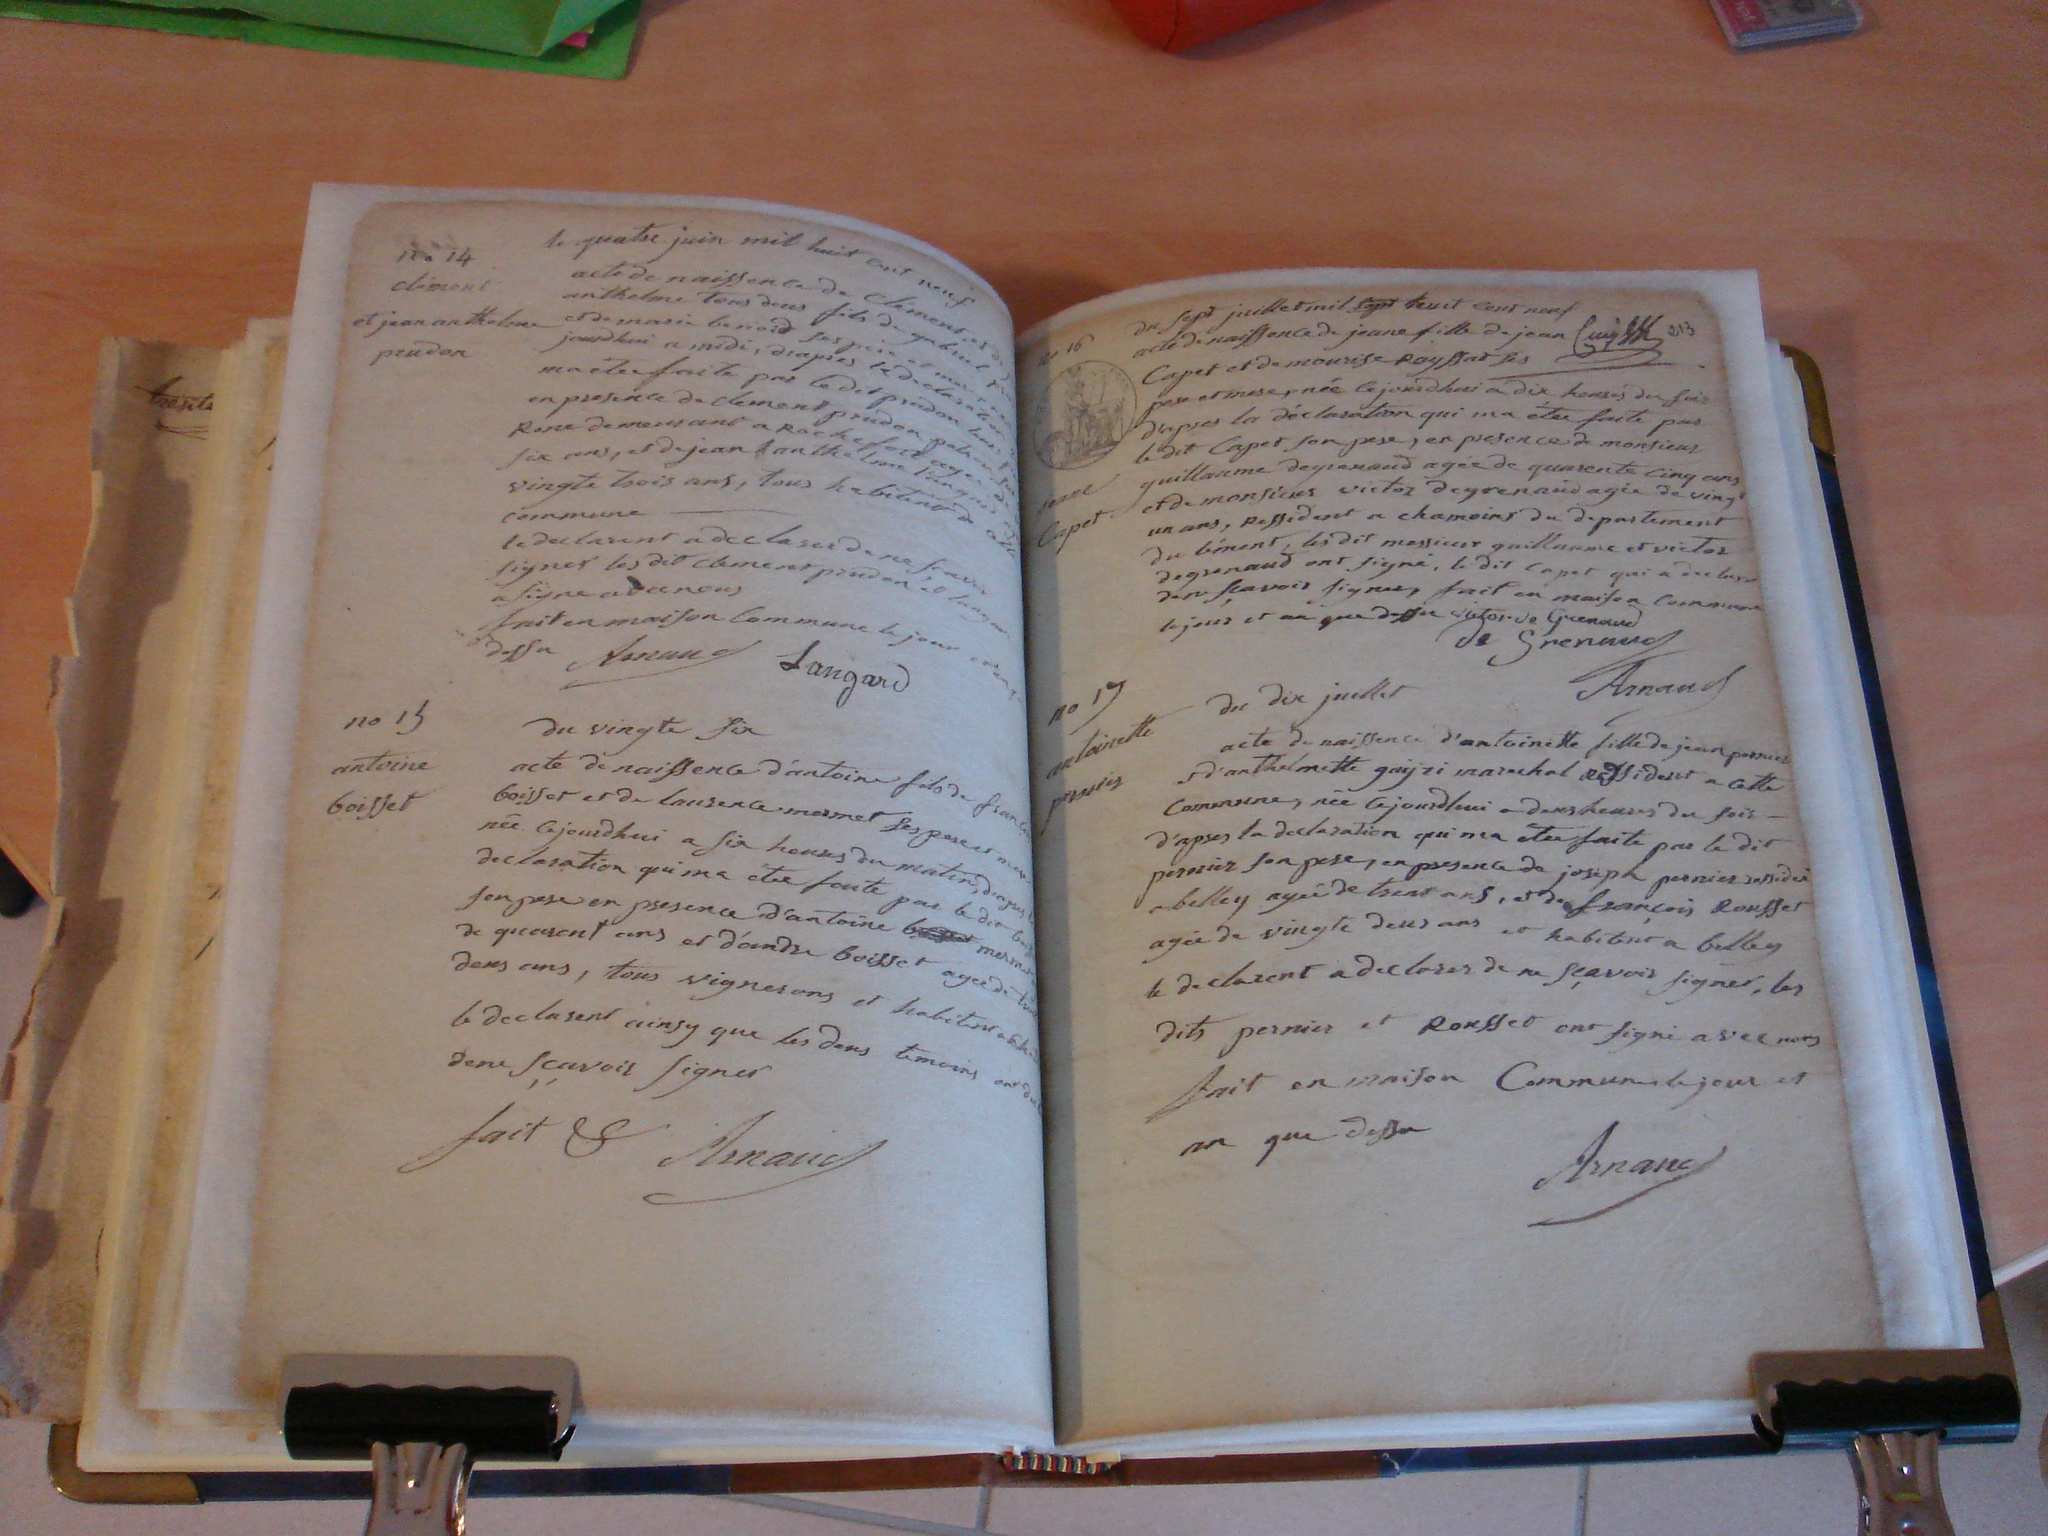 no 14
clément
et jean anthelme
prudon
le quatre juin mil huit cent neuf
acte de naissence de clément et de
anthelme tous deus fils de gabriel
et de marie benoit ses pere et mere
jourdhui a midi, drapres la declaration
ma êtee faite par le dit prudon
en presence de clement prudon
demeurant a Rochefort agee de
six ans, et de jean anthelme
vingte trois ans, tous habitent de
commune
le declarent a declarer de ne scavoir
signer les dit clement prudon et
a signe avec nous
fait en maison Commune le jour et an que
dessu Arnaud Langard
no 15
antoine
boisset
du vingte six
acte de naissence d'antoine fils de françois
boisset et de laurence mermet ses pere et mere
née cejourdhui a six heures du matin, drapres la
declaration qui ma êtee faite par le dit
son pere en presence d'antoine mermet
de quarent ans et d'andre boisset agee de
deus ans, tous vignerons et habitent
le declarent ainsy que les deus temoins ont
de ne sçavoir signer
fait & Arnaud
213
no 16
jeane
Capet
du sept juillet mil sept huit cent neuf
acte de naissence de jeane fille de jean
Capet et de mourise Rayssat ses
pere et mere, née cejourdhui a dix heures du soir
d'apres la déclaration qui ma êtee faite par
le dit Capet son pere, en presence de monsieur
guillaume degrenaud agée de quarente cinq ans
et de monsieur victor degrenaud agée de vingt
un ans, Ressident a chamoins du departement
du lément, les dit messieur guillaume et victor
degrenaud ont signé, le dit Capet qui a declare
de ne sçavoir signer, fait en maison Commune
le jour et an que dessu victor de Grenaud
de Grenaud
Arnaud
no 17
antoinette
pernier
du dix juillet
acte de naissence d'antoinette fille de jean pernier
et d'anthelmette marechal Ressident a cette
Commune, née cejourdhui a deus heures du soir
d'apres la declaration qui ma êtee faite par le dit
pernier son pere, en presence de joseph pernier ressident
a belley agée de trent ans, et de françois Rousset
agée de vingte deus ans et habitent a belley
le declarent a declarer de ne sçavoir signer, les
dits pernier et Rousset ont signé avec nous
fait en maison Commune le jour et
an que dessu
Arnaud